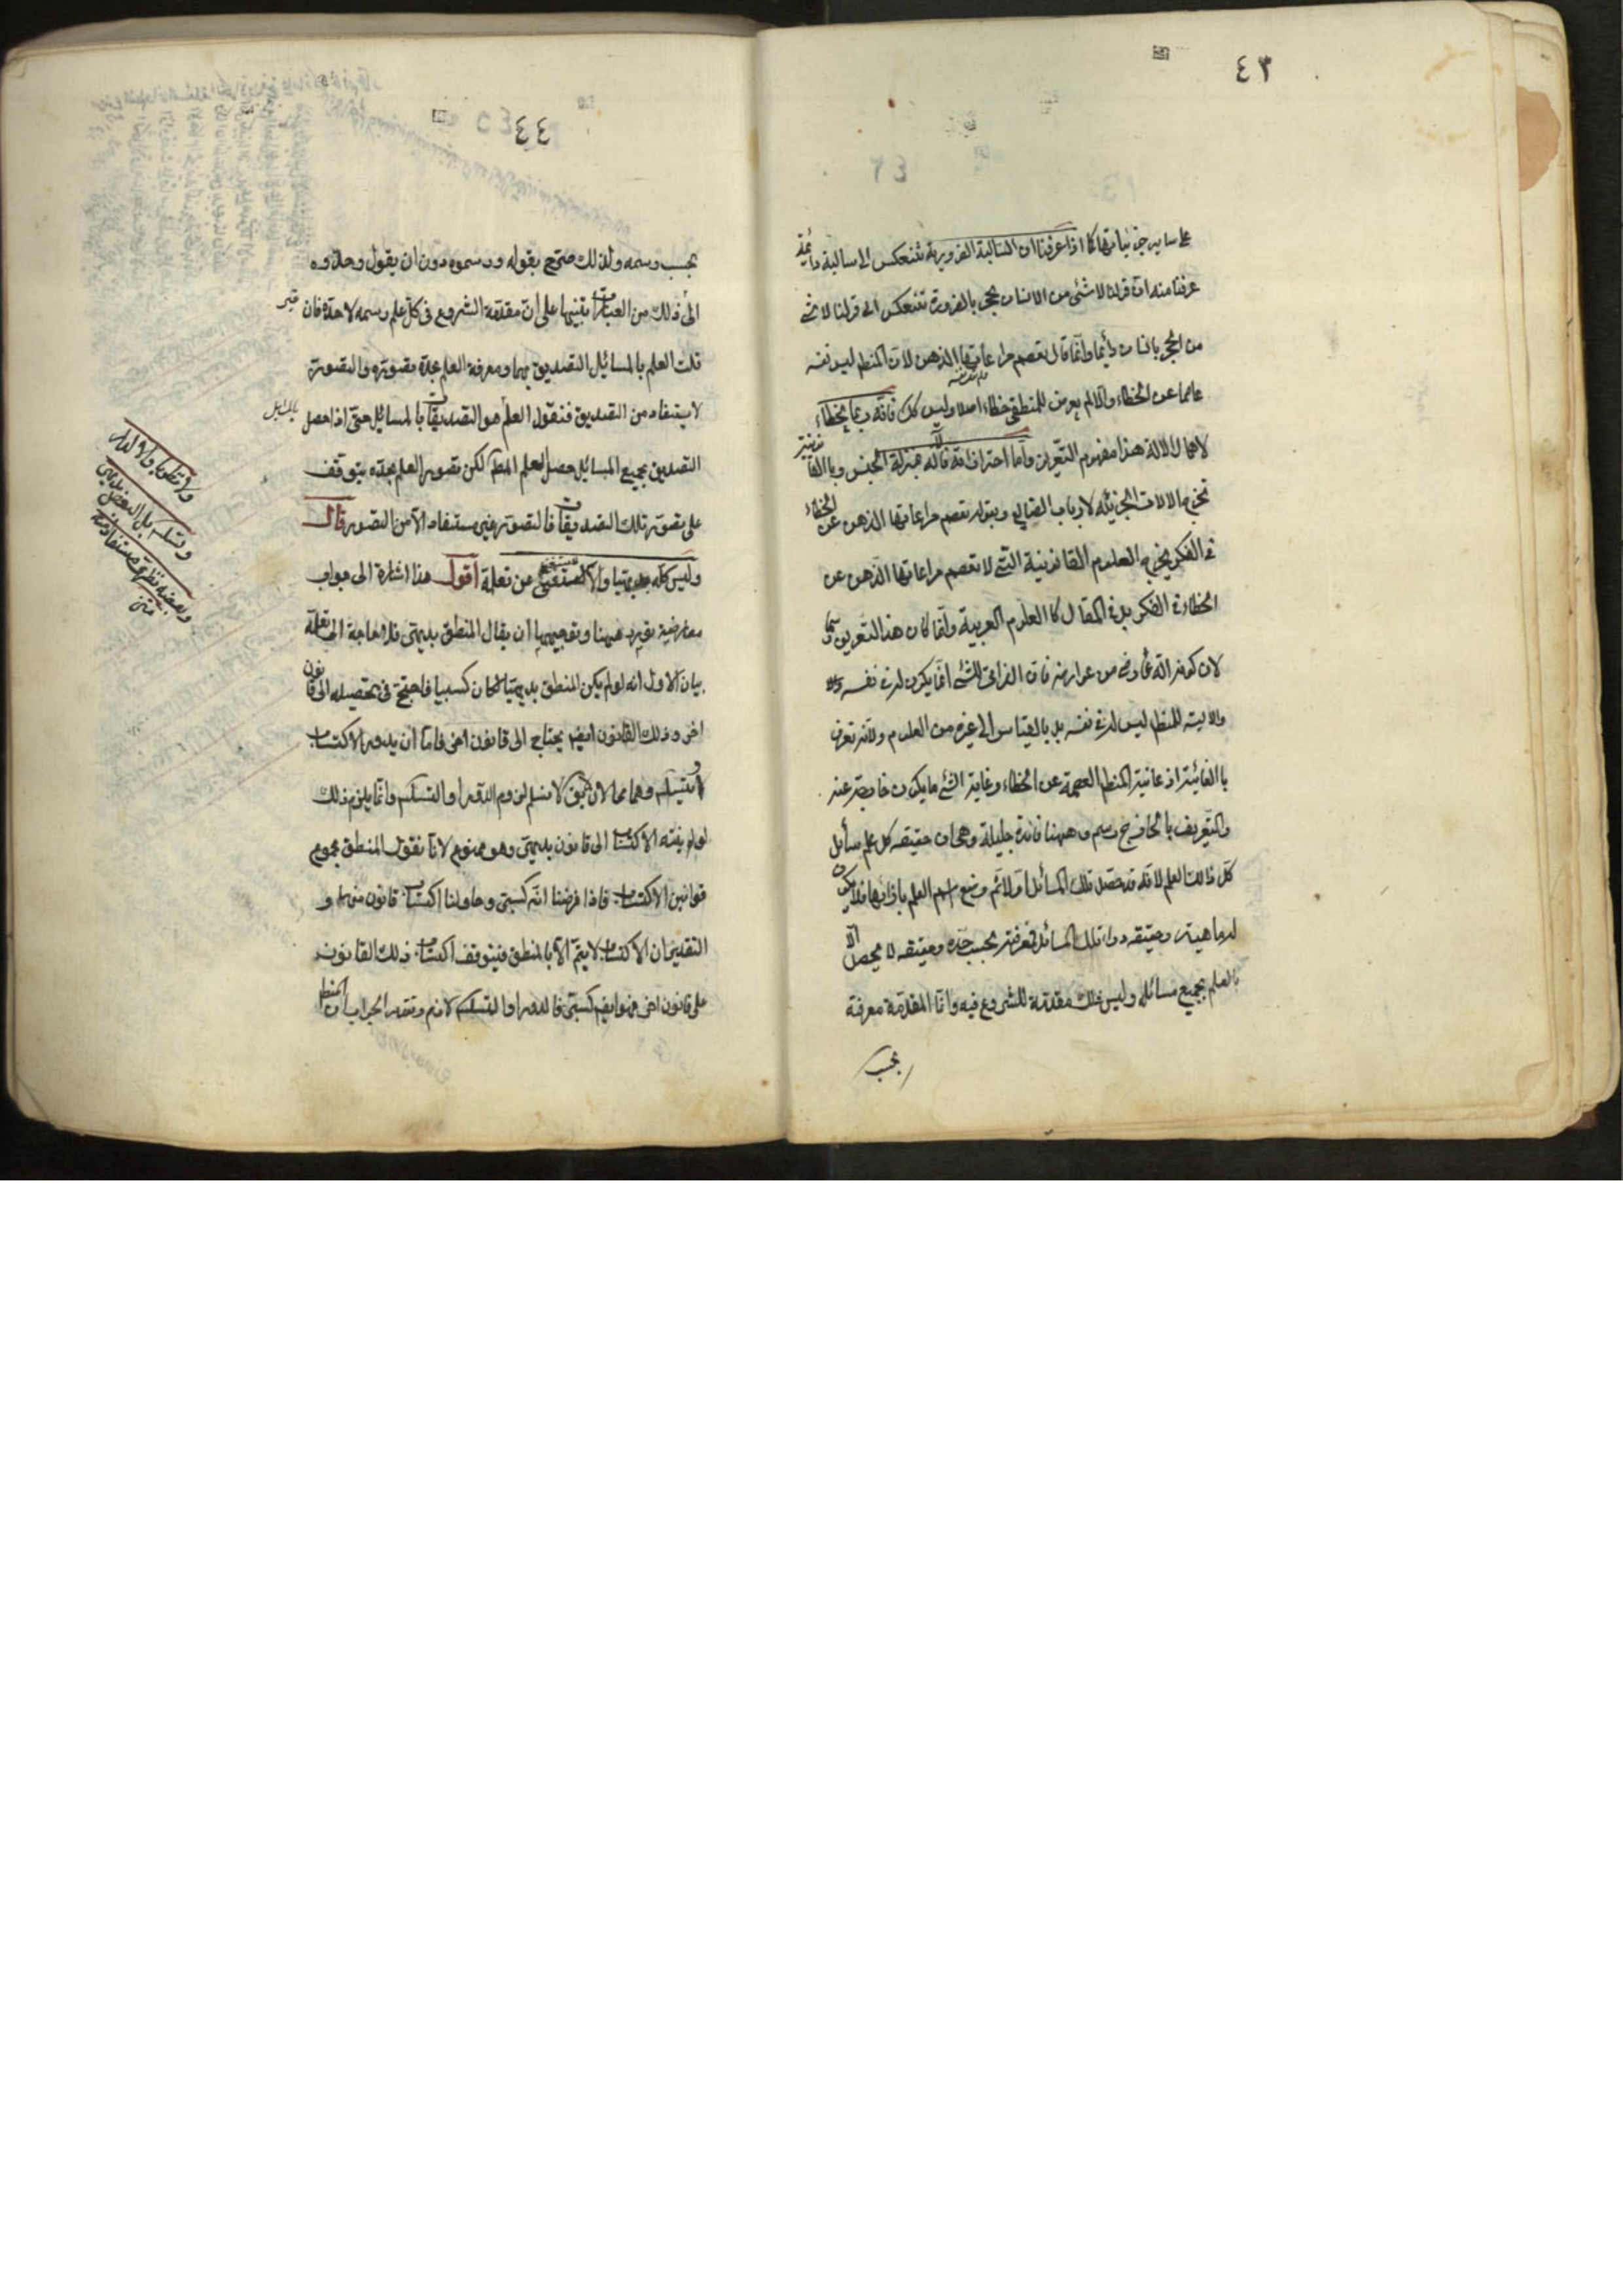 ٤٣
على ساير جزئياتها كما اذا عرفنا ان السالبة الضرورية تنعكس الى سالبة دائمة
عرفنا منه ان قولنا لا شئ من الانسان بحجر بالضرورة تنعكس الى قولنا لا شئ
من الحجر بانسان دائما وانما قال تعصم مراعاتها الذهن لان المنطق ليس نفسه
عاصما عن الخطاء والا لم يعرض للمنطقى خطاء اصلا وليس كك فانه ربما يخطاء
لاهمال الالة هذا مفهوم التعريف واما احترازاته فالالة بمنزلة الجنس وبالقانونية
تخرج الالات الجزئية لارباب الصنايع وبقوله تعصم مراعاتها الذهن عن الخطاء
فى الفكر يخرج العلوم القانونية التى لا تعصم مراعاتها الذهن عن
الخطاء فى الفكر بل فى المقال كالعلوم العربية وانما كان هذا التعريف رسما
لان كونه الة عارض من عوارضه فان الذاتى للشئ انما يكون له فى نفسه
والالية للمنطق ليس له فى نفسه بل بالقياس الى غيره من العلوم ولانه تعريف
بالغاية اذ غاية المنطق العصمة عن الخطاء وغاية الشئ ما يكون خارجة عنه
والتعريف بالخارج رسم وههنا فائدة جليلة وهى ان حقيقه كل علم مسائل
كل ذلك العلم لانه قد حصل تلك المسائل اولا ثم وضع اسم العلم بازائها فلا يكون
له ماهية وحقيقه وراء تلك المسائل فمعرفته بحسب حده وحقيقه لا يحصل الا
بالعلم بجميع مسائله وليس ذلك مقدمة للشروع فيه وانما المقدمة معرفة
بحسب
٤٤
بحسب رسمه ولذلك صرح بقوله ورسموه دون ان يقول وحدوه
الى غير ذلك من العبارات تنبيها على ان مقدمة الشروع فى كل علم رسمه لا حده فان
قلت العلم بالمسائل التصديق بها ومعرفة العلم بحده تصوره والتصور
لا يستفاد من التصديق فنقول العلم هو التصديقات بالمسائل حتى اذا حصل
التصديق بجميع المسائل حصل العلم المط لكن تصور العلم بحده يتوقف
على تصور تلك التصديقات فالتصور غير مستفاد الا من التصور قال
وليس كله بديهيا والا لاستغنى عن تعلمه اقول هذا اشارة الى جواب
معارضة تورد ههنا وتوجيهها ان يقال المنطق بديهى فلا حاجة الى تعلمه
بيان الاول انه لو لم يكن المنطق بديهيا لكان كسبيا فاحتيج فى تحصيله الى قانون
اخر وذلك القانون ايضا يحتاج الى قانون اخر فاما ان يدور الاكتساب
او يتسلسل وهما محالان لا يق لا نسلم لزوم الدور او التسلسل وانما يلزم ذلك
لو لم ينته الاكتساب الى قانون بديهى وهو ممنوع لانا نقول المنطق مجموع
قوانين الاكتساب فاذا فرضنا انه كسبى وحاولنا اكتساب قانون منها و
التقدير ان الاكتساب لا يتم الا بالمنطق فيتوقف اكتساب ذلك القانون
على قانون اخر فهو ايض كسبى فالدور او التسلسل لازم وتقرير الجواب ان المنطق
والا نظريا والا لدار
وتسلسل بل البعض بديهى
وبعضه نظرى مستفاد منه
متن